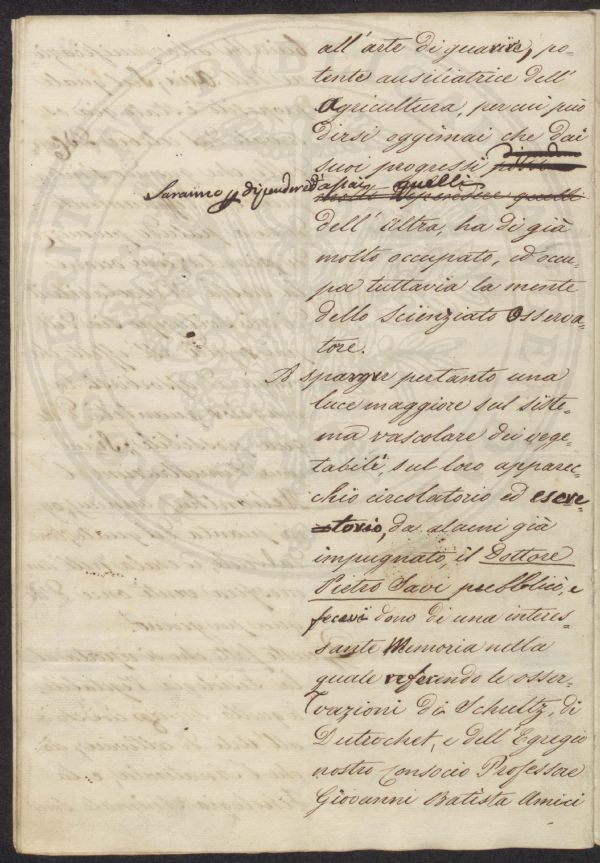 all'arte di guarire, po-
tente ausiliatrice dell'
Agricultura, per cui può
dirsi oggimai che dai
suoi progressi
Saranno dipendere d'assai quelli
molto dipendere quelli
dell'altra, ha di già
molto occupato, ed occu-
pa tuttavia la mente
dello Scienziato Osserva-
tore.
A spargere pertanto una
luce maggiore sul siste-
ma vascolare dei vege-
tabili, sul loro apparec-
chio circolatorio ed escre-
torio, da alcuni già
impugnato, il Dottore
Pietro Savi pubblicò, e
fecevi dono di una interes-
sante Memoria nella
quale referindo le osser-
vazioni di Schultz, di
Dutrochet, e dell'Egregio
nostro Consocio Professore
Giovanni Batista Amici